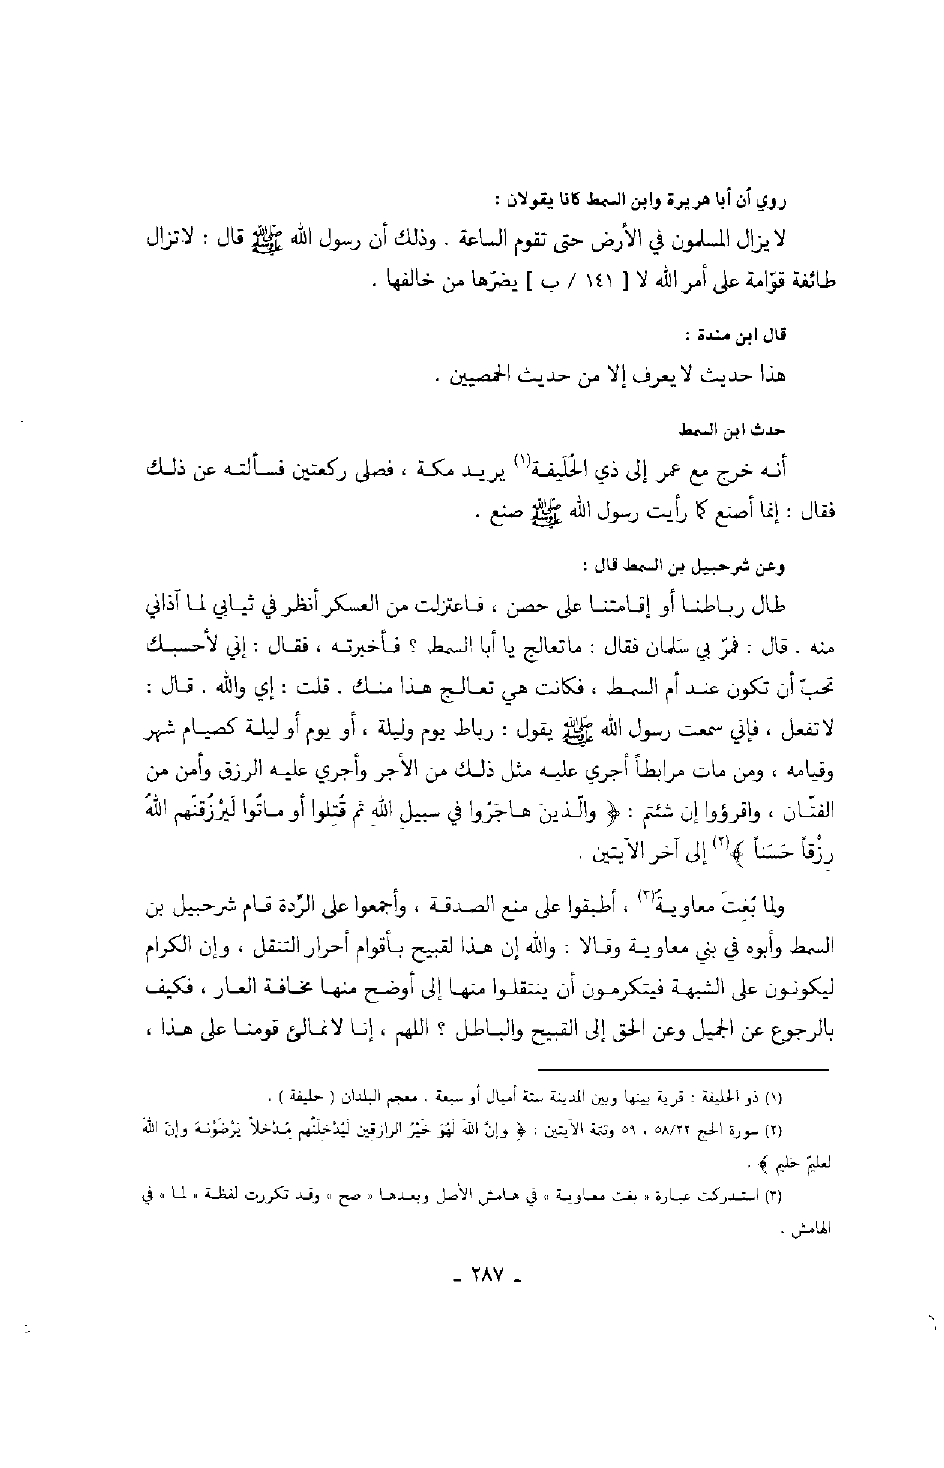 روي أن أبا هريرة وابن السمط كانا يقولان :
لا يزال المسلمون في الأرض حتى تقوم الساعة . وذلك أن رسول الله ﷺ قال : لاتزال
طائفة قوّامة على أمر الله لا [ ١٤١ / ب ] يضرّها من خالفها .
قال ابن مندة :
هذا حديث لا يعرف إلا من حديث الحمصيين .
حدث ابن السمط
أنه خرج مع عمر إلى ذي الحُلَيفة(١) يريد مكة ، فصلى ركعتين فسألته عن ذلك
فقال : إنما أصنع كما رأيت رسول الله ﷺ صنع .
وعن شرحبيل بن السمط قال :
طال رباطنا أو إقامتنا على حصن ، فاعتزلت من العسكر أنظر في ثيابي لما آذاني
منه . قال : فمرّ بي سَلمان فقال : ماتعالج يا أبا السمط ؟ فأخبرته ، فقال : إني لأحسبك
تحبّ أن تكون عند أم السمط ، فكانت هي تعالج هذا منك . قلت : إي والله . قال :
لاتفعل ، فإني سمعت رسول الله ﷺ يقول : رباط يوم وليلة ، أو يوم أو ليلة كصيام شهر
وقيامه ، ومن مات مرابطاً أجري عليه مثل ذلك من الأجر وأجري عليه الرزق وأمن من
الفتّان ، واقرؤوا إن شئتم : ﴿ والّذينَ هاجَرُوا في سبيلِ اللهِ ثم قُتِلوا أو ماتُوا لَيَرْزُقنّهم اللهُ
رِزْقاً حَسَناً ﴾(٢) إلى آخر الآيتين .
ولما بُغِتَ معاوية(٣) ، أطبقوا على منع الصدقة ، وأجمعوا على الرّدة قام شرحبيل بن
السمط وأبوه في بني معاوية وقالا : والله إن هذا لقبيح بأقوام أحرار التنقل ، وإن الكرام
ليكونون على الشبهة فيتكرمون أن ينتقلوا منها إلى أوضح منها مخافة العار ، فكيف
بالرجوع عن الجميل وعن الحق إلى القبيح والباطل ؟ اللهم ، إنا لا نمالئ قومنا على هذا ،
(١) ذو الحليفة : قرية بينها وبين المدينة ستة أميال أو سبعة . معجم البلدان ( حليفة ) .
(٢) سورة الحج ٥٨/٢٢ ، ٥٩ وتتمة الآيتين : ﴿ وإنّ اللهَ لهُوَ خَيْرُ الرازقين لَيُدْخلَنّهُم مُدْخلاً يَرْضَوْنهَ وإنّ اللهَ
لعليمٌ حليم ﴾ .
(٣) استدركت عبارة « بغت معاوية » في هامش الأصل وبعدها « صح » وقد تكررت لفظة « لما » في
الهامش .
ـ ٢٨٧ ـ